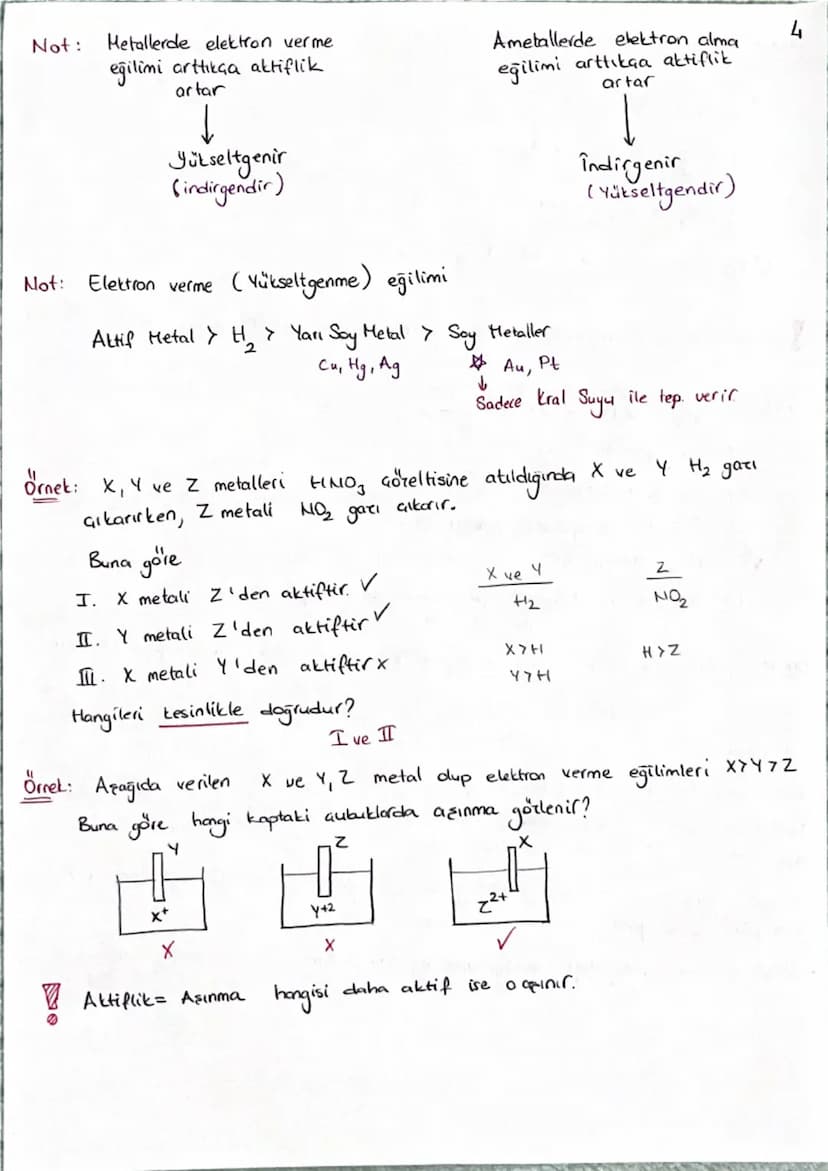 4
Not: Metallerde elektron verme
eğilimi arttıkça aktiflik
artar
Yükseltgenir
(indirgendir)
Ametallerde elektron alma
eğilimi arttıkça aktiflik
artar
İndirgenir
(Yükseltgendir)
Not: Elektron verme (Yükseltgenme) eğilimi
Aktif Metal > H2 > Yarı Soy Metal > Soy Metaller
Cu, Hg, Ag
Au, Pt
Sadece Kral Suyu ile tep. verir
Örnek: X, Y ve Z metalleri HNO3 çözeltisine atıldığında X ve Y H2 gazı
çıkarırken, Z metali NO2 gazı çıkarır.
Buna göre
I. X metali Z'den aktiftir. ✓
II. Y metali Z'den aktiftir ✓
III. X metali Y'den aktiftir x
X ve Y
H2
X>H
Y>H
Z
NO2
H>Z
Hangileri kesinlikle doğrudur?
I ve II
Örnek: Aşağıda verilen X ve Y, Z metal olup elektron verme eğilimleri X>Y>Z
Buna göre hangi kaptaki çubuklarda aşınma gözlenir?
Y
X+
X
Z
Y+2
X
X
Z2+
✓
! Aktiflik= Aşınma hangisi daha aktif ise o aşınır.